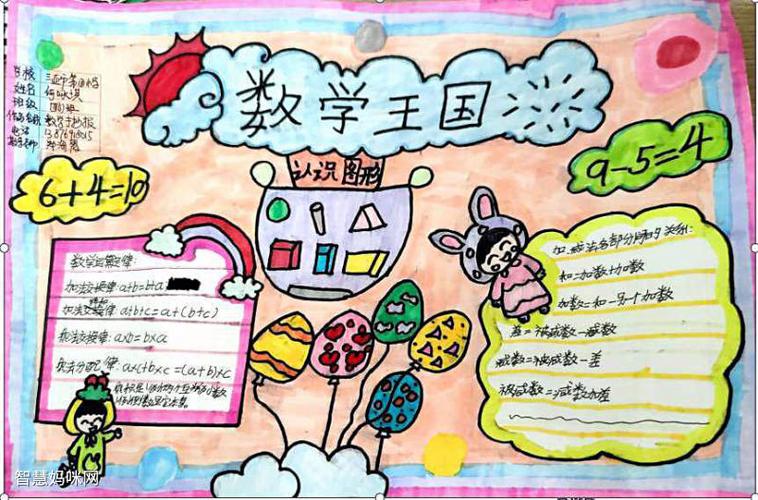 数学王国
学校 三亚市第四小学
姓名
班级
作品名称 数学手抄报
电话
认识图形
6+4=10
9-5=4
数学运算定律:
加法交换律:a+b=b+a
加法结合律:a+b+c=a+(b+c)
乘法交换律:a×b=b×a
乘法分配律:a×c+b×c=(a+b)×c
加、减法各部分间的关系:
和=加数+加数
加数=和-另一个加数
差=被减数-减数
减数=被减数-差
被减数=减数加差
智慧妈咪网